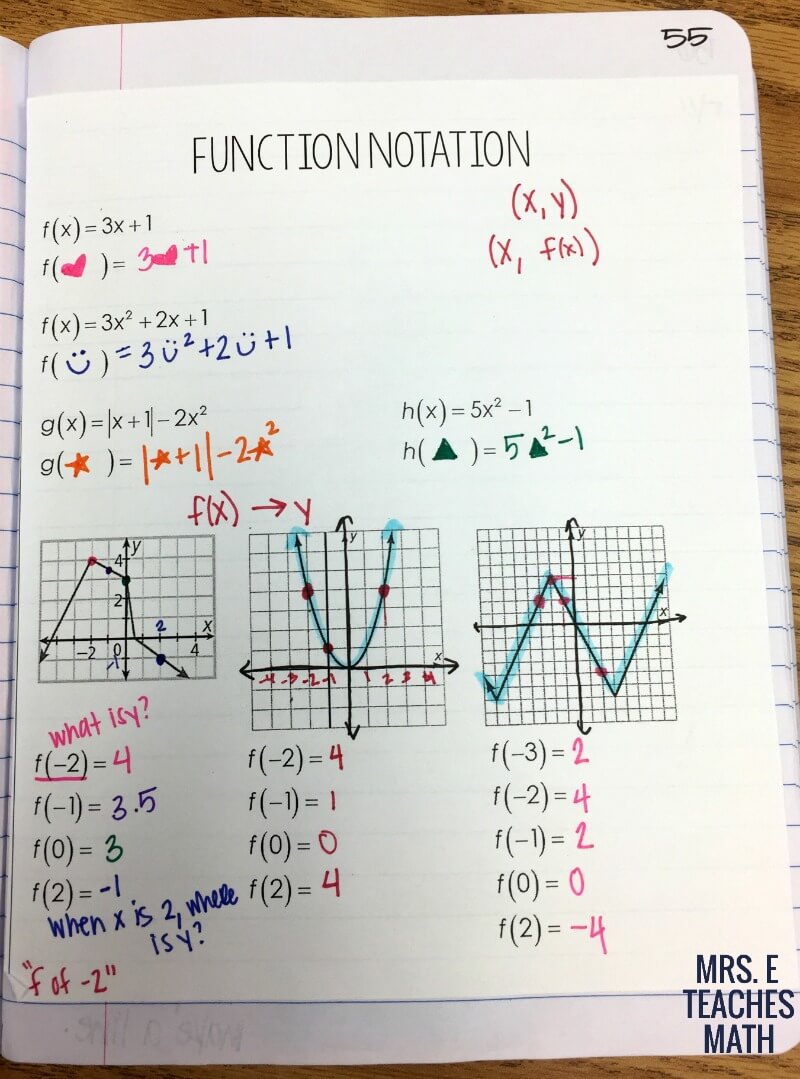 55
FUNCTION NOTATION
(x, y)
(x, f(x))
f(x) = 3x + 1
f(♥) = 3♥ + 1
f(x) = 3x² + 2x + 1
f(ü) = 3ü² + 2ü + 1
g(x) = |x + 1| − 2x²
g(★) = |★ + 1| − 2★²
h(x) = 5x² − 1
h(▲) = 5▲² − 1
f(x) → y
y
4
2
x
−2 0 2 4
-1
y
x
-4 -3 -2 -1 1 2 3 4
y
x
what is y?
f(−2) = 4
f(−1) = 3.5
f(0) = 3
f(2) = -1
when x is 2, where
is y?
"f of -2"
f(−2) = 4
f(−1) = 1
f(0) = 0
f(2) = 4
f(−3) = 2
f(−2) = 4
f(−1) = 2
f(0) = 0
f(2) = -4
MRS. E
TEACHES
MATH